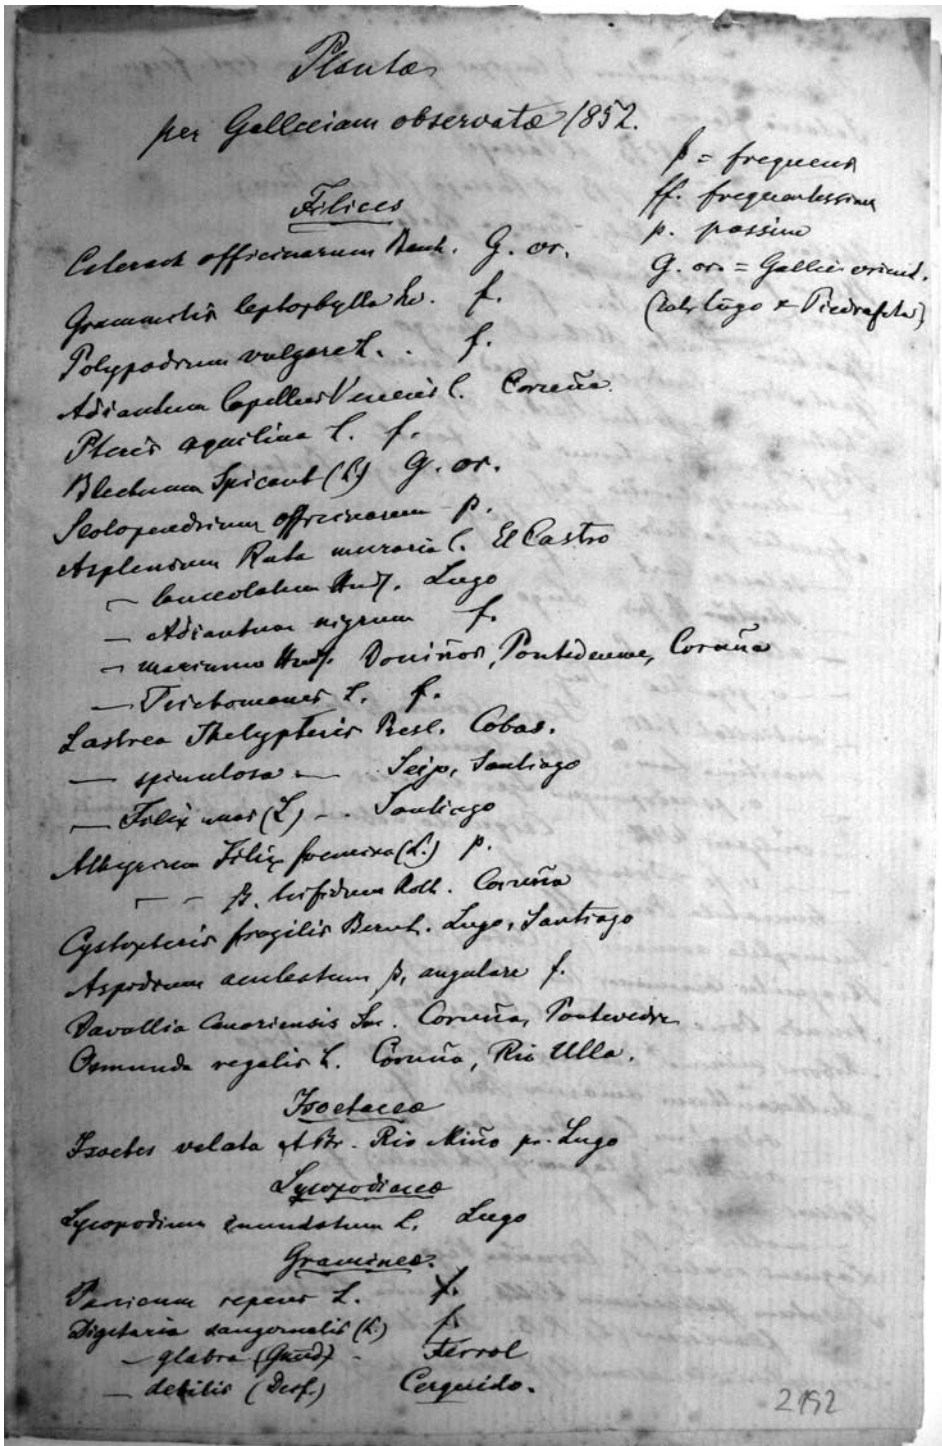 Plantæ
per Gallæciam observatæ 1852.
f = frequens
ff. frequentissima
p. passim
G. or. = Gallic. orient.
(Lugo & Piedrafita)
Filices
Ceterach officinarum Bauh. G. or.
Grammitis leptophylla Sw. f.
Polypodium vulgare L. . f.
Adiantum Capillus Veneris L. Coruña.
Pteris aquilina L. f.
Blechnum Spicant (L.) G. or.
Scolopendrium officinarum p.
Asplenium Ruta muraria L. El Castro
— lanceolatum Huds. Lugo
— Adiantum nigrum f.
— marinum Huds. Doniños, Pontedeume, Coruña
— Trichomanes L. f.
Lastrea Thelypteris Presl. Cobas.
— spinulosa — Seijo, Santiago
— Filix mas (L.) - . Santiago
Athyrium Filix foemina (L.) p.
— - β. trifidum Roth. Coruña
Cystopteris fragilis Bernh. Lugo, Santiago
Aspidium aculeatum β, angulare f.
Davallia Canariensis Sw. Coruña, Pontevedra
Osmunda regalis L. Coruña, Rio Ulla.
Isoetaceæ
Isoetes velata A Br. Rio Miño pr. Lugo
Lycopodiaceæ
Lycopodium inundatum L. Lugo
Gramineæ.
Panicum repens L. f.
Digitaria sanguinalis (L.) f.
— glabra (Gaud) . Ferrol
— debilis (Desf.) Cerquido.
2192